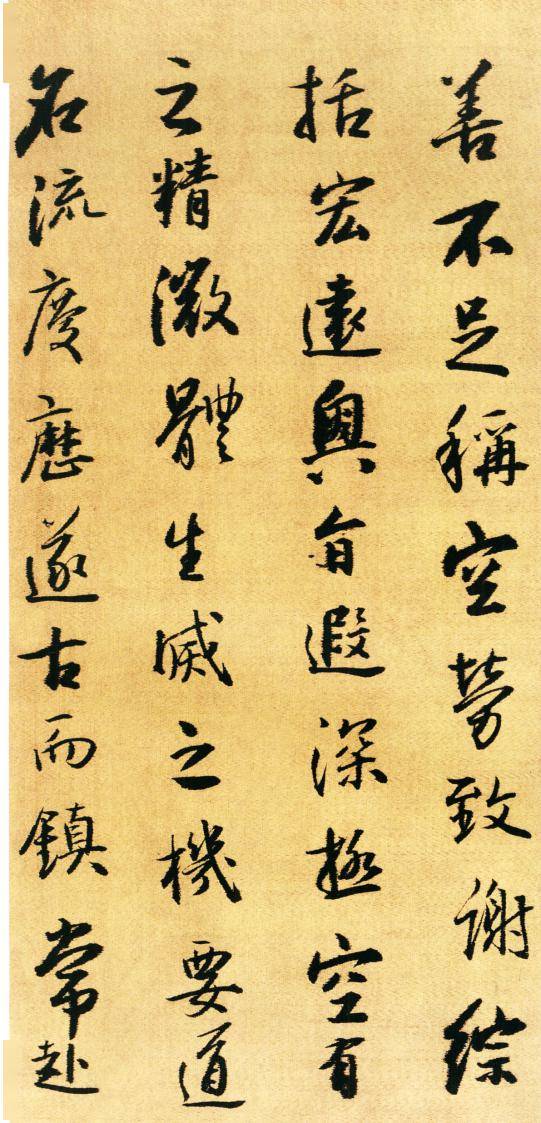 善不足稱空勞致謝綜
括宏遠奧旨遐深極空有
之精微體生滅之機要道
名流慶歷遂古而鎮常赴